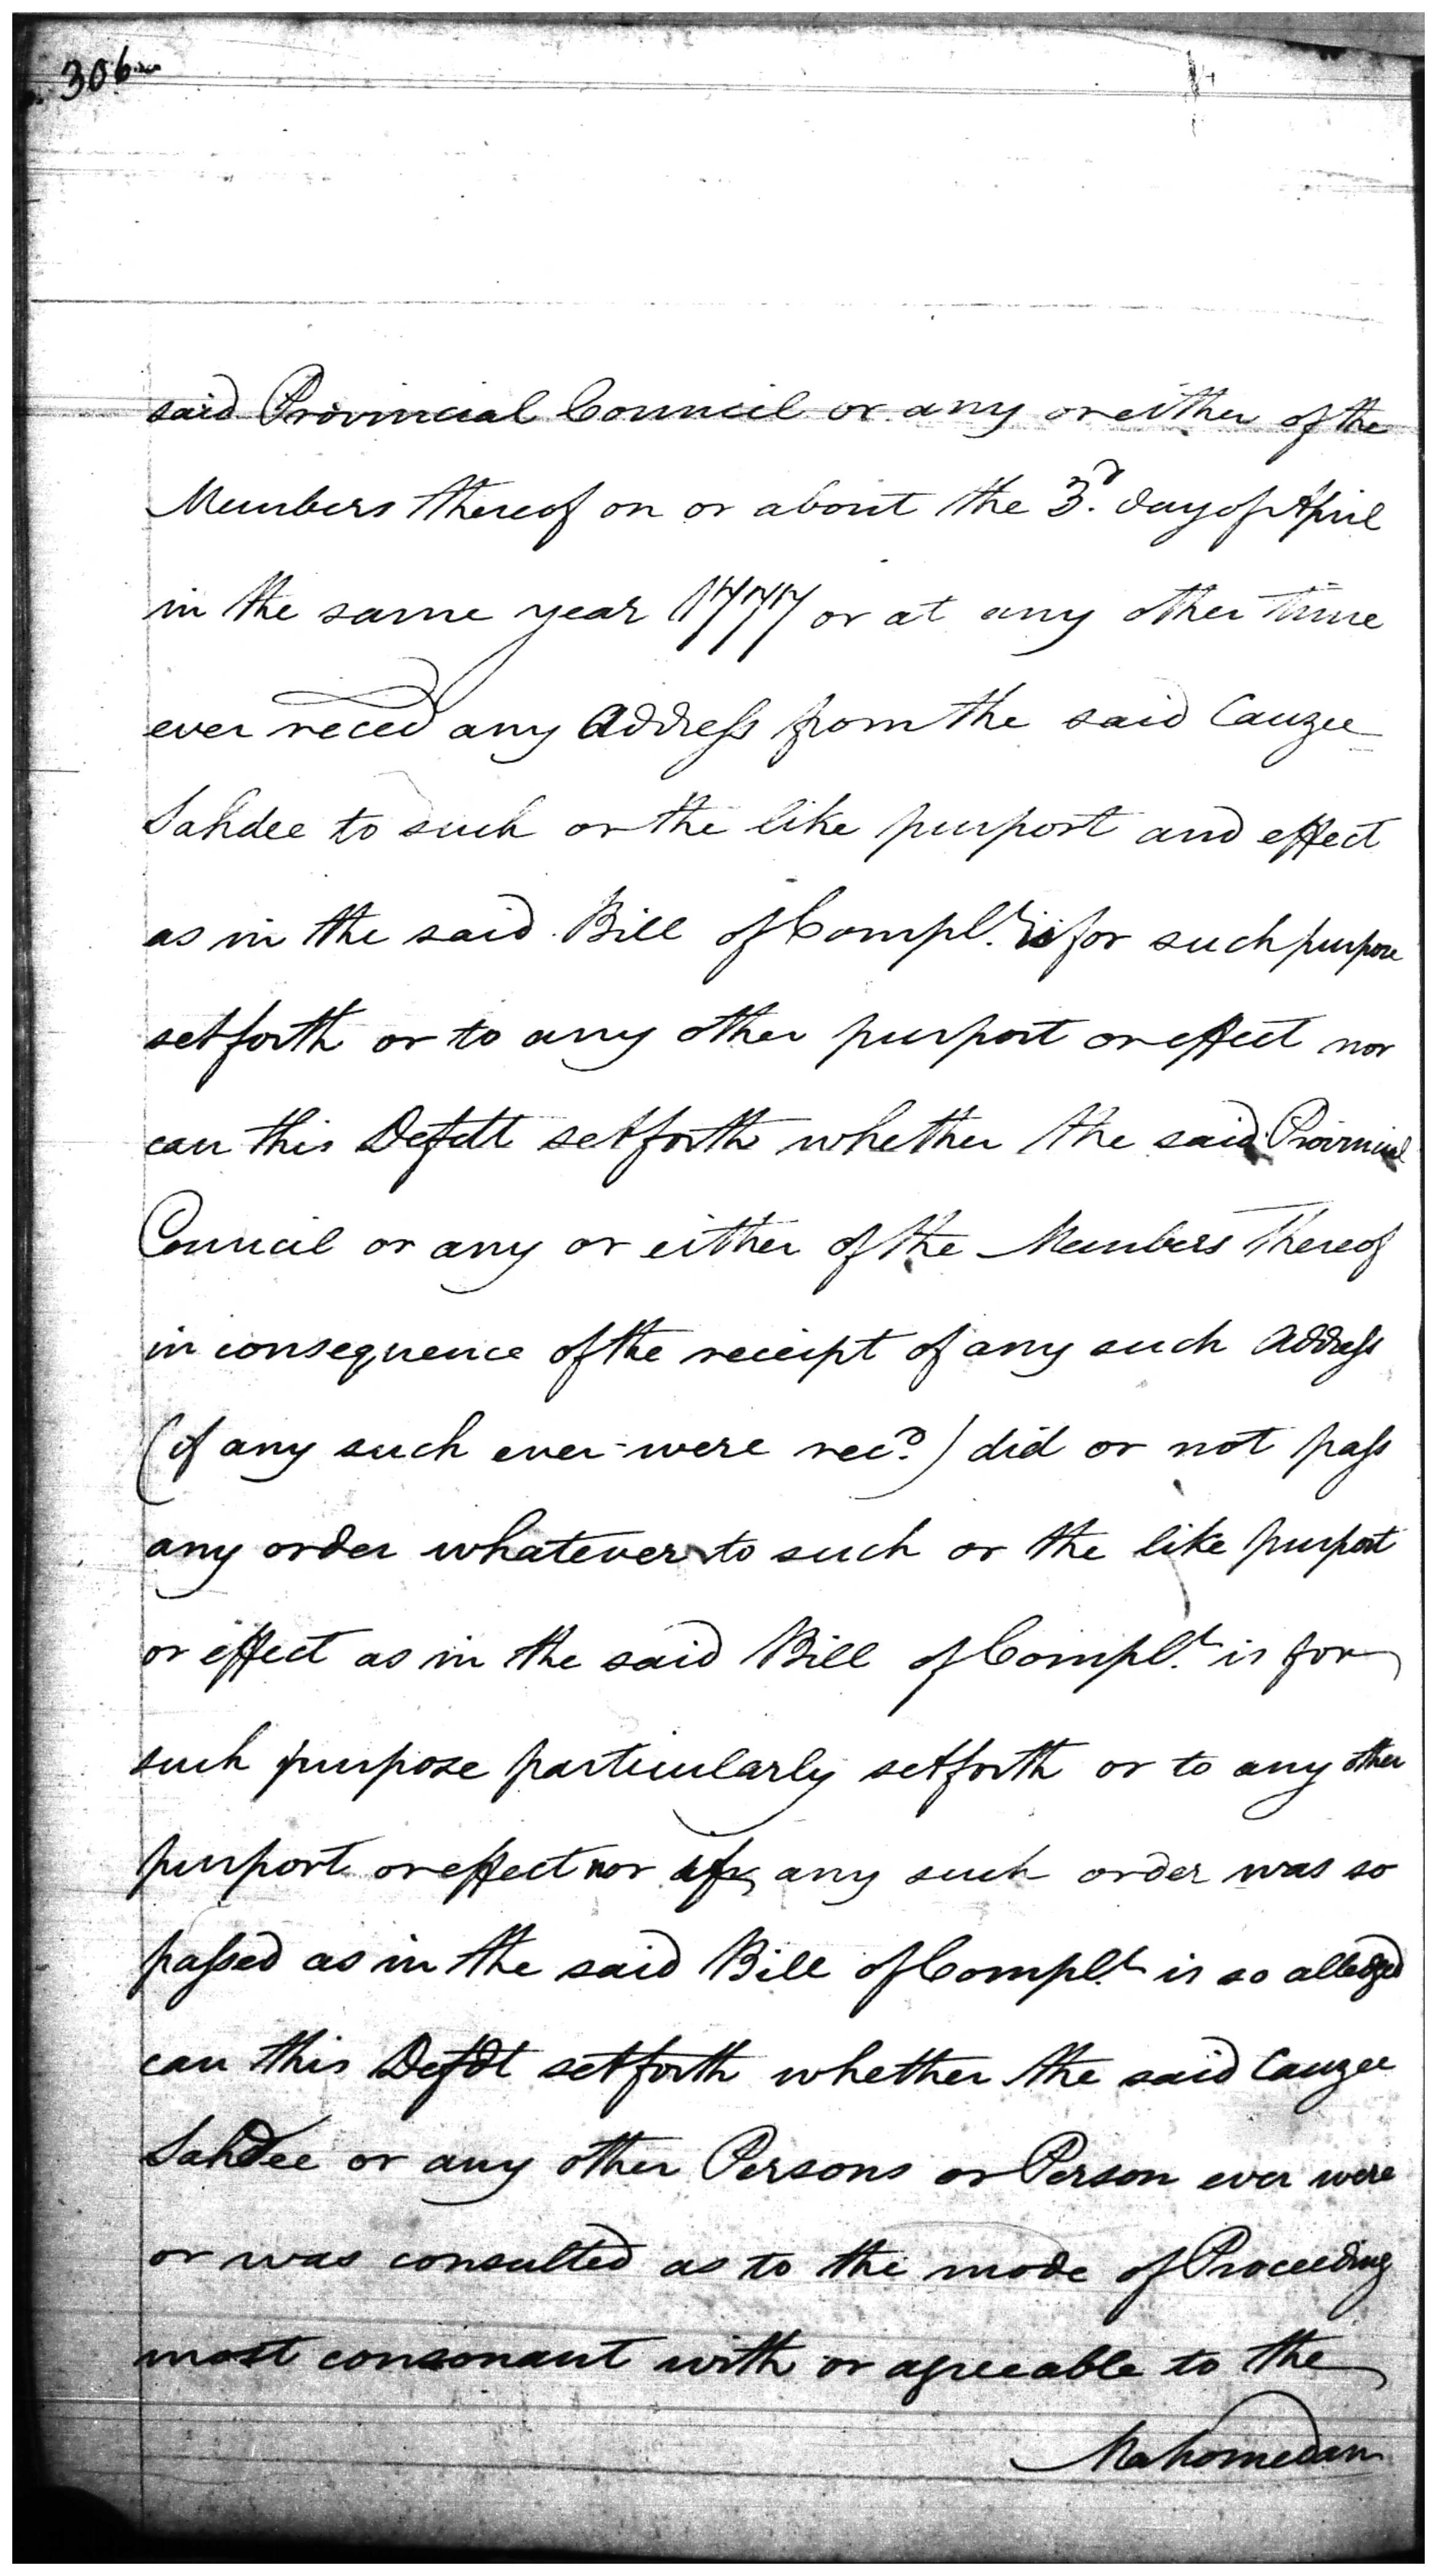 306
said Provincial Council or any or either of the
Members thereof on or about the 3.d day of April
in the same year 1777 or at any other time
ever reced any Address from the said Cauzee
Sahdee to such or the like purport and effect
as in the said Bill of Compl.t is for such purpose
setforth or to any other purport or effect nor
can this Defdt setforth whether the said Provincial
Council or any or either of the Members thereof
in consequence of the receipt of any such Address
(if any such ever were rec.d) did or not pass
any order whatever to such or the like purport
or effect as in the said Bill of Compl.t is for
such purpose particularly setforth or to any other
purport or effect nor if any such order was so
passed as in the said Bill of Compl.t is so alledged
can this Defdt setforth whether the said Cauzee
Sahdee or any other Persons or Person ever were
or was consulted as to the mode of Proceeding
most consonant with or agreeable to the
Mahomedan